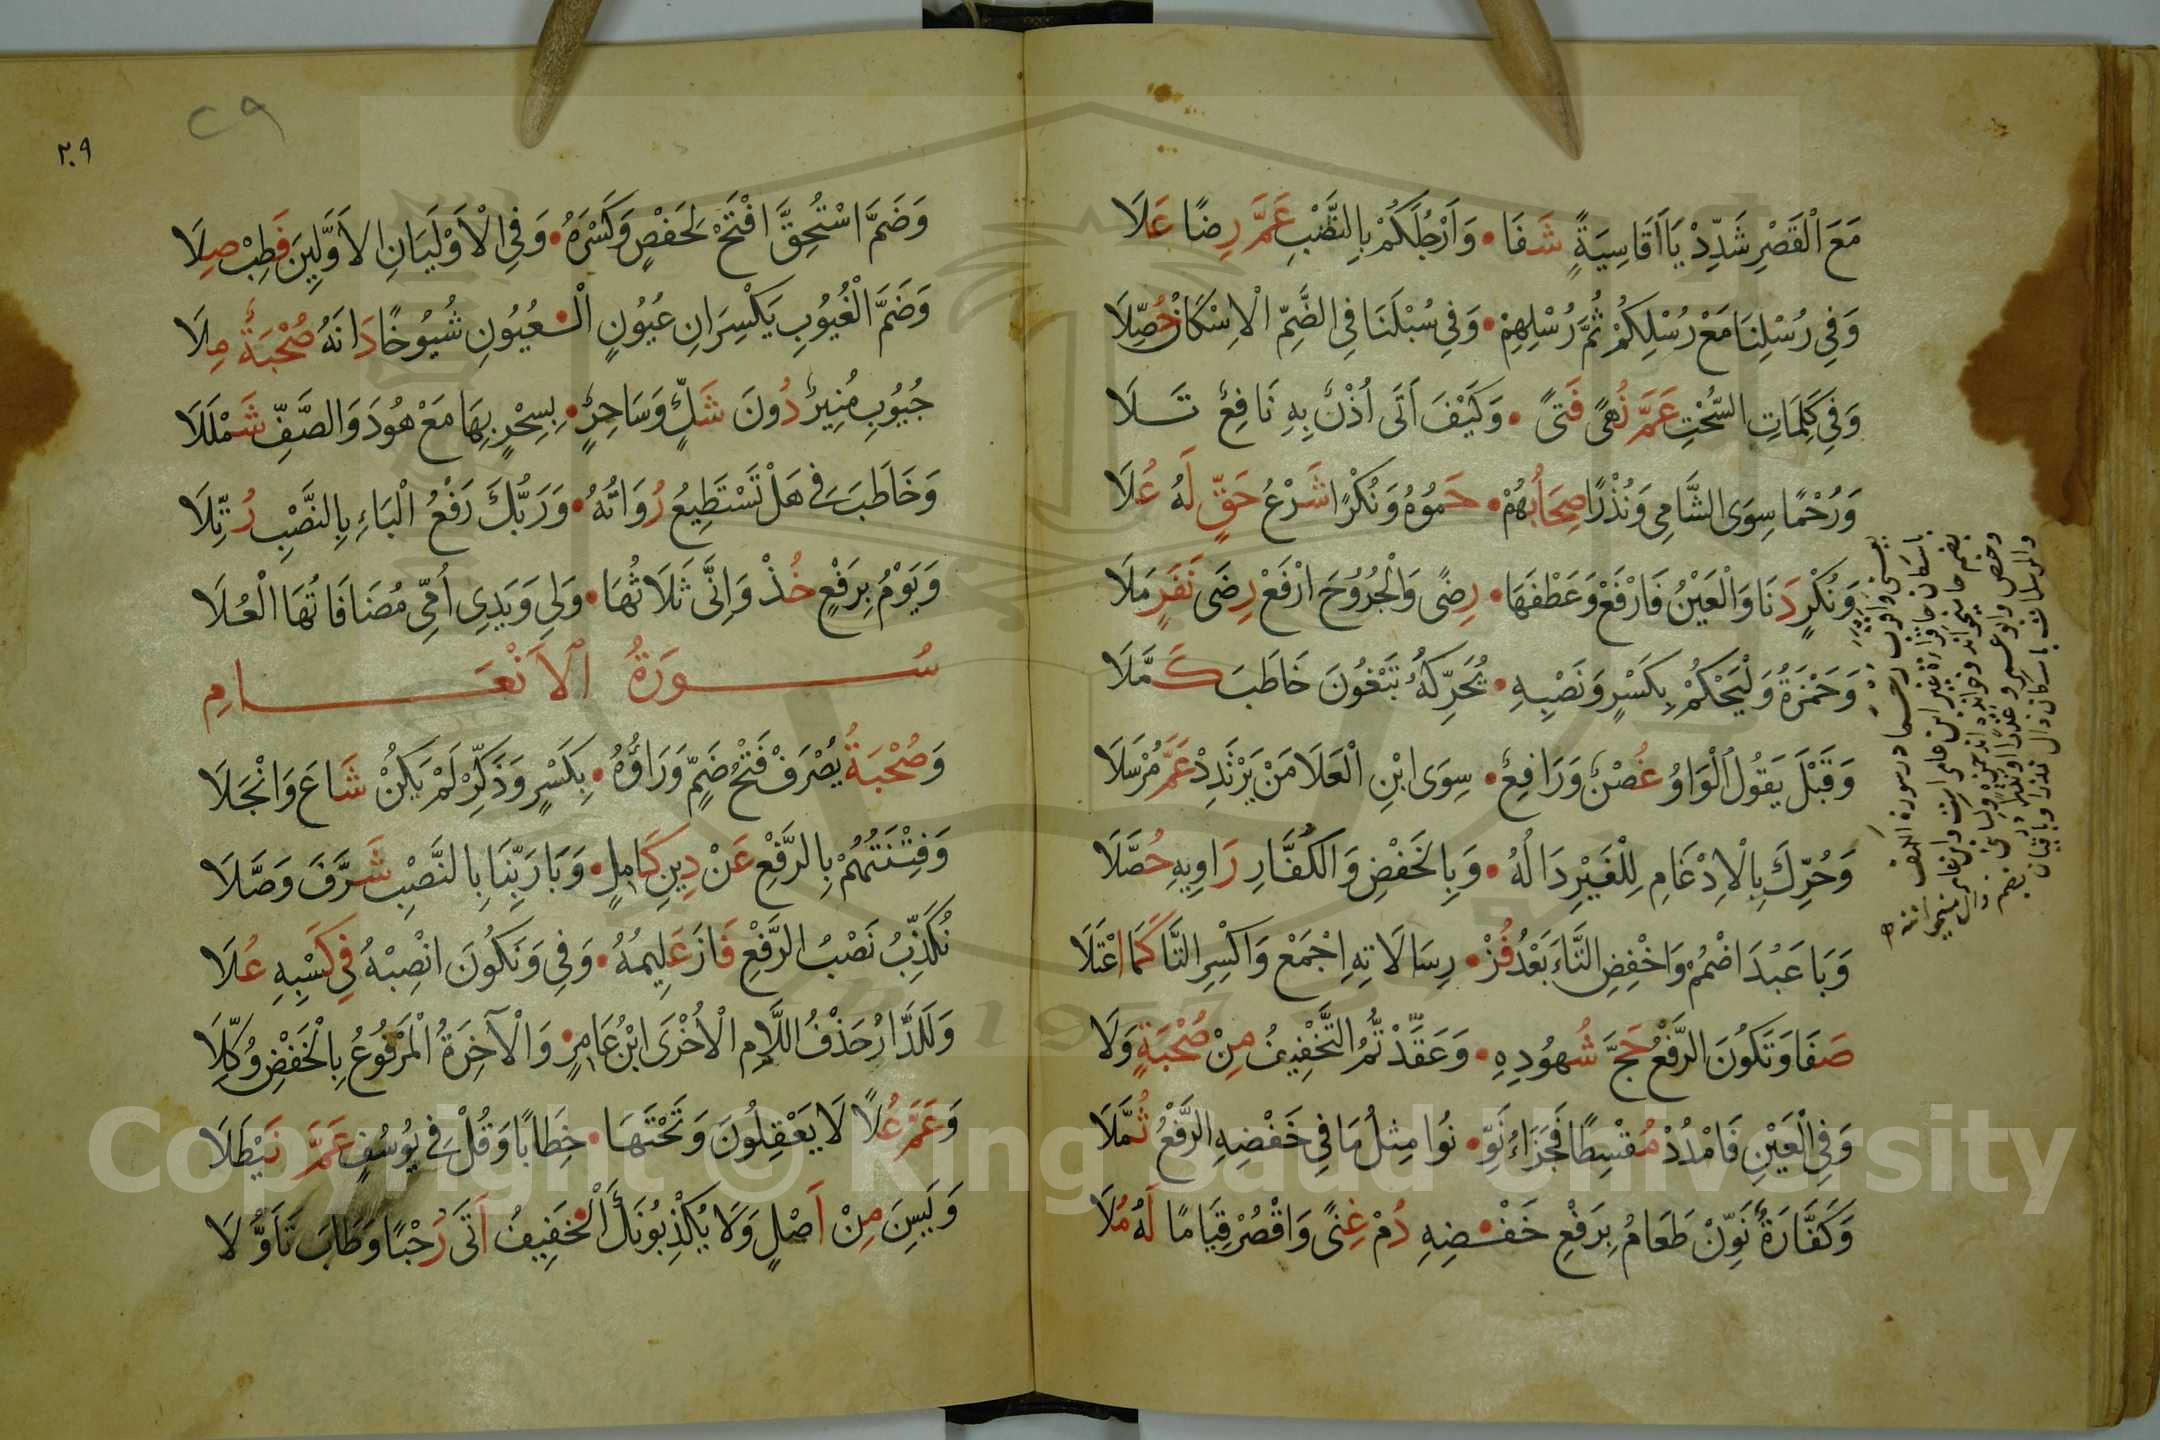 مَعَ الْقَصْرِ شَدِّدْ يَاءَ قَاسِيَةً شَفَا • وَأَرْجُلَكُمْ بِالنَّصْبِ عَمَّ رِضًا عَلَا
وَفِي رُسْلِنَا مَعْ رُسْلِكُمْ ثُمَّ رُسْلِهِمْ • وَفِي سُبْلَنَا فِي الضَّمِّ الْاِسْكَانُ حُصِّلَا
وَفِي كَلِمَاتِ السُّحْتِ عَمَّ نُهًى فَتًى • وَكَيْفَ أَتَى أُذْنٌ بِهِ نَافِعٌ تَلَا
وَرُحْمًا سِوَى الشَّامِي وَنُذْرًا صِحَابُهُمْ • حَمَوْهُ وَنُكْرًا شَرْعُ حَقٍّ لَهُ عُلَا
وَنُكْرٍ دَنَا وَالْعَيْنُ فَارْفَعْ وَعَطْفَهَا • رِضًى وَالْجُرُوحَ ارْفَعْ رِضَى نَفَرٍ مَلَا
وَحَمْزَةُ وَلْيَحْكُمْ بِكَسْرٍ وَنَصْبِهِ • يُحَرِّكُهُ تَبْغُونَ خَاطَبَ كَمَّلَا
وَقَبْلَ يَقُولُ الْوَاوُ غُصْنٌ وَرَافِعٌ • سِوَى ابْنِ الْعَلَا مَنْ يَرْتَدِدْ عَمَّ مُرْسَلَا
وَحُرِّكَ بِالْاِدْغَامِ لِلْغَيْرِ دَالُهُ • وَبِالْخَفْضِ وَالْكُفَّارِ رَاوِيهِ حُصَّلَا
وَبَا عَبُدَ اضْمُمْ وَاخْفِضِ التَّاءَ بَعْدُ فُزْ • رِسَالَاتِهِ اجْمَعْ وَاكْسِرِ التَّا كَمَا اعْتَلَا
صَفَا وَتَكُونَ الرَّفْعُ حَجَّ شُهُودِهِ • وَعَقَّدْتُمُ التَّخْفِيفُ مِنْ صُحْبَةٍ وَلَا
وَفِي الْعَيْنِ فَامْدُدْ مُقْسِطًا فَجَزَاءُ نَوِّ • نُوا مِثْلُ مَا فِي خَفْضِهِ الرَّفْعُ ثُمَّلَا
وَكَفَّارَةٌ نَوِّنْ طَعَامُ بِرَفْعِ خَفْضِهِ دُمْ غِنًى وَاقْصُرْ قِيَامًا لَهُ مُلَا
٢٠٩
٢٩
وَضَمَّ اسْتُحِقَّ افْتَحْ لِحَفْصٍ وَكَسْرَهُ • وَفِي الْأَوْلَيَانِ الْأَوَّلِينَ فَطِبْ صِلَا
وَضَمَّ الْغُيُوبِ يَكْسِرَانِ عُيُونٍ الْعُيُونِ شُيُوخًا دَانَهُ صُحْبَةٌ مِلَا
جُيُوبِ مُنِيرٌ دُونَ شَكٍّ وَسَاحِرٌ • بِسِحْرٍ بِهَا مَعْ هُودَ وَالصَّفِّ شَمْلَلَا
وَخَاطَبَ فِي هَلْ تَسْتَطِيعُ رُوَاتُهُ • وَرَبُّكَ رَفْعُ الْبَاءِ بِالنَّصْبِ رُتِّلَا
وَيَوْمُ بِرَفْعٍ خُذْ وَإِنِّى ثَلَاثُهَا • وَلِي وَيَدِي أُمِّي مُضَافَاتُهَا الْعُلَا
سُورَةُ الْأَنْعَامِ
وَصُحْبَةُ يُصْرَفْ فَتْحُ ضَمٍّ وَرَاؤُهُ • بِكَسْرٍ وَذَكِّرْ لَمْ يَكُنْ شَاعَ وَانْجَلَا
وَفِتْنَتُهُمْ بِالرَّفْعِ عَنْ دِينِ كَامِلٍ • وَبَا رَبِّنَا بِالنَّصْبِ شَرَّفَ وَصَّلَا
نُكَذِّبُ نَصْبُ الرَّفْعِ فَازَ عَلِيمُهُ • وَفِي وَنَكُونَ انْصِبْهُ فِي كَسْبِهِ عُلَا
وَلَلدَّارُ حَذْفُ اللَّامِ الْأُخْرَى ابْنُ عَامِرٍ • وَالْآخِرَةُ الْمَرْفُوعُ بِالْخَفْضِ وُكِّلَا
وَعَمَّ عُلًا لَا يَعْقِلُونَ وَتَحْتَهَا • خِطَابًا وَقُلْ فِي يُوسُفٍ عَمَّ نَيْطَلَا
وَيَسِينَ مِنْ أَصْلٍ وَلَا يُكْذِبُونَكَ الْخَفِيفُ أَتَى رُحْبًا وَطَابَ تَأَوُّلَا
Copyright © King Saud University
1957